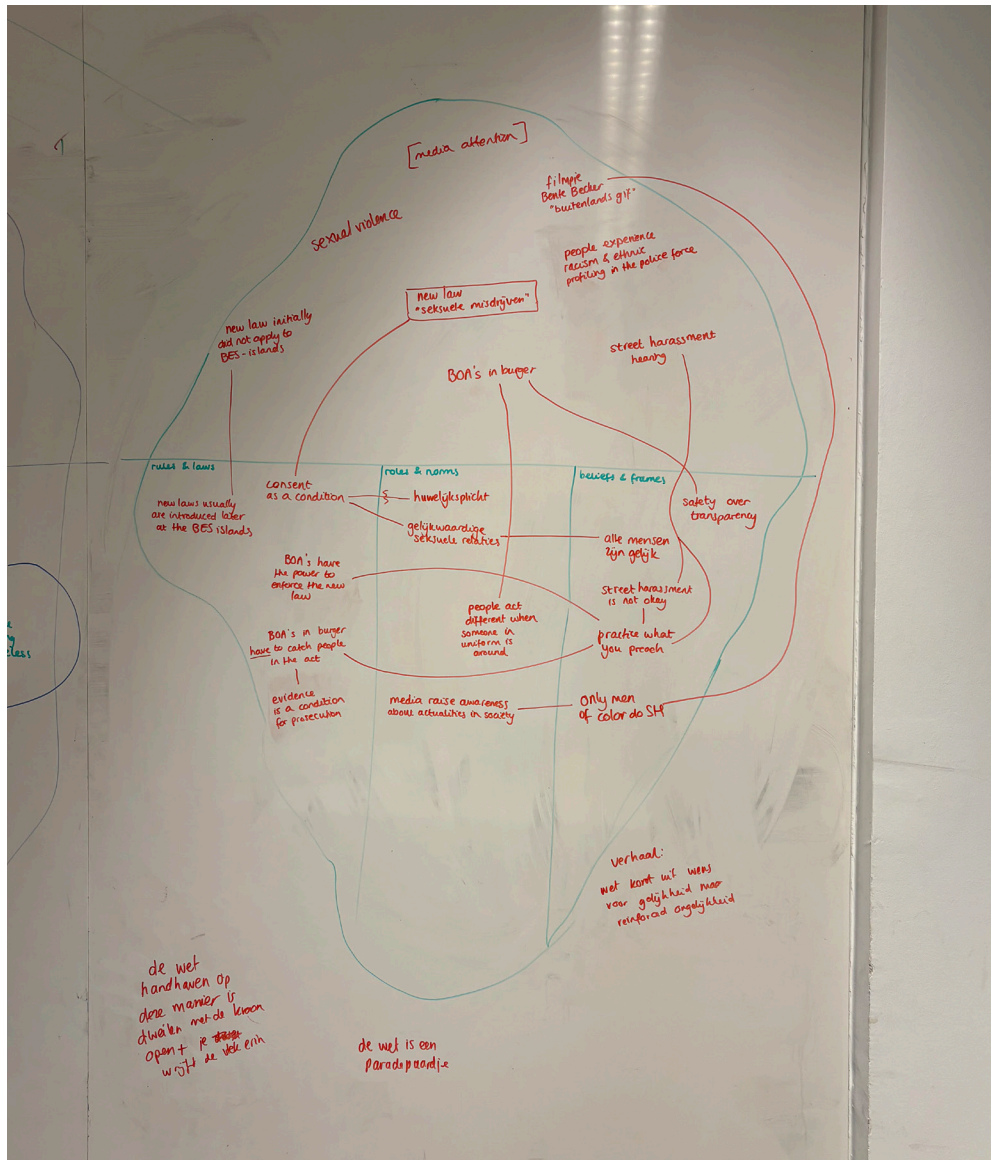 [media attention]
filmpje
Bente Becker
"buitenlands gif"
sexual violence
people experience
racism & ethnic
profiling in the police force
new law
"seksuele misdrijven"
new law initially
did not apply to
BES-islands
street harassment
hearing
BOA's in burger
rules & laws
roles & norms
beliefs & frames
consent
as a condition
huwelijksplicht
new laws usually
are introduced later
at the BES islands
safety over
transparency
gelijkwaardige
seksuele relaties
alle mensen
zijn gelijk
BOA's have
the power to
enforce the new
law
street harassment
is not okay
people act
different when
someone in
uniform is
around
practice what
you preach
BOA's in burger
have to catch people
in the act
evidence
is a condition
for prosecution
media raise awareness
about actualities in society
only men
of color do SH
verhaal:
wet komt uit wens
voor gelijkheid maar
reinforced ongelijkheid
de wet
handhaven op
deze manier is
dweilen met de kraan
open + je
wrijft de vlek erin
de wet is een
Paradepaardje